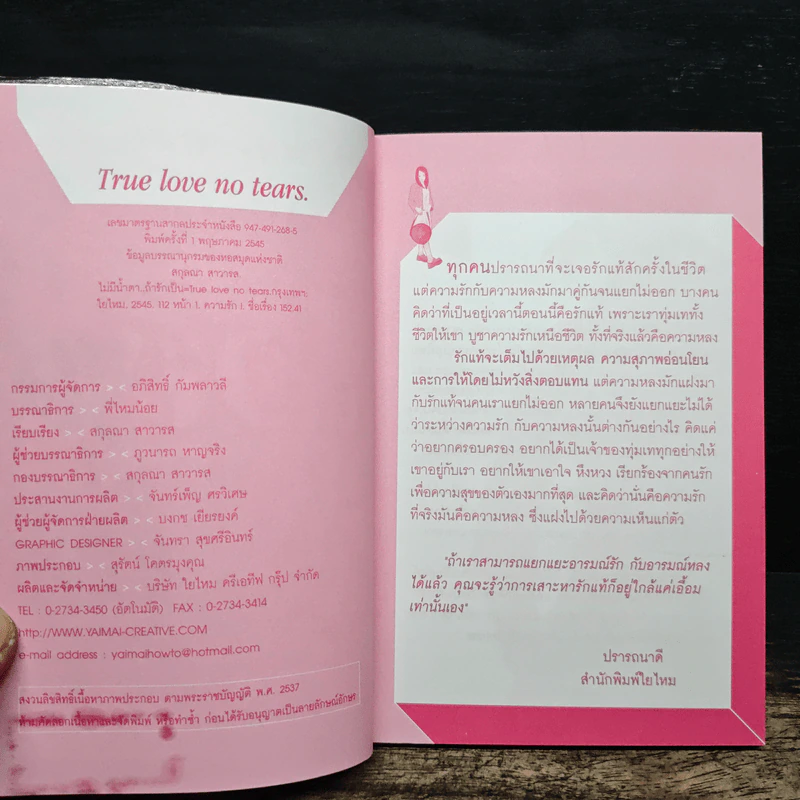 True love no tears.
เลขมาตรฐานสากลประจำหนังสือ 947-491-268-5
พิมพ์ครั้งที่ 1 พฤษภาคม 2545
ข้อมูลบรรณานุกรมของหอสมุดแห่งชาติ
สกุลณา สาวารส.
ไม่มีน้ำตา..ถ้ารักเป็น=True love no tears.กรุงเทพฯ:
ใยไหม, 2545. 112 หน้า 1. ความรัก I. ชื่อเรื่อง 152.41
กรรมการผู้จัดการ > < อภิสิทธิ์ กัมพลาวลี
บรรณาธิการ > < พี่ไหมน้อย
เรียบเรียง > < สกุลณา สาวารส
ผู้ช่วยบรรณาธิการ > < ภูวนารถ หาญจริง
กองบรรณาธิการ > < สกุลณา สาวารส
ประสานงานการผลิต > < จันทร์เพ็ญ ศรวิเศษ
ผู้ช่วยผู้จัดการฝ่ายผลิต > < บงกช เยียรยงค์
GRAPHIC DESIGNER > < จันทรา สุขศรีอินทร์
ภาพประกอบ > < สุรัตน์ โคตรมุงคุณ
ผลิตและจัดจำหน่าย > < บริษัท ใยไหม ครีเอทีฟ กรุ๊ป จำกัด
TEL : 0-2734-3450 (อัตโนมัติ) FAX : 0-2734-3414
http://WWW.YAIMAI-CREATIVE.COM
e-mail address : yaimaihowto@hotmail.com
สงวนลิขสิทธิ์เนื้อหาภาพประกอบ ตามพระราชบัญญัติ พ.ศ. 2537
ห้ามคัดลอกเนื้อหาและจัดพิมพ์ หรือทำซ้ำ ก่อนได้รับอนุญาตเป็นลายลักษณ์อักษร
ทุกคนปรารถนาที่จะเจอรักแท้สักครั้งในชีวิต
แต่ความรักกับความหลงมักมาคู่กันจนแยกไม่ออก บางคน
คิดว่าที่เป็นอยู่เวลานี้ตอนนี้คือรักแท้ เพราะเราทุ่มเททั้ง
ชีวิตให้เขา บูชาความรักเหนือชีวิต ทั้งที่จริงแล้วคือความหลง
รักแท้จะเต็มไปด้วยเหตุผล ความสุภาพอ่อนโยน
และการให้โดยไม่หวังสิ่งตอบแทน แต่ความหลงมักแฝงมา
กับรักแท้จนคนเราแยกไม่ออก หลายคนจึงยังแยกแยะไม่ได้
ว่าระหว่างความรัก กับความหลงนั้นต่างกันอย่างไร คิดแค่
ว่าอยากครอบครอง อยากได้เป็นเจ้าของทุ่มเททุกอย่างให้
เขาอยู่กับเรา อยากให้เขาเอาใจ หึงหวง เรียกร้องจากคนรัก
เพื่อความสุขของตัวเองมากที่สุด และคิดว่านั่นคือความรัก
ที่จริงมันคือความหลง ซึ่งแฝงไปด้วยความเห็นแก่ตัว
"ถ้าเราสามารถแยกแยะอารมณ์รัก กับอารมณ์หลง
ได้แล้ว คุณจะรู้ว่าการเสาะหารักแท้ก็อยู่ใกล้แค่เอื้อม
เท่านั้นเอง"
ปรารถนาดี
สำนักพิมพ์ใยไหม